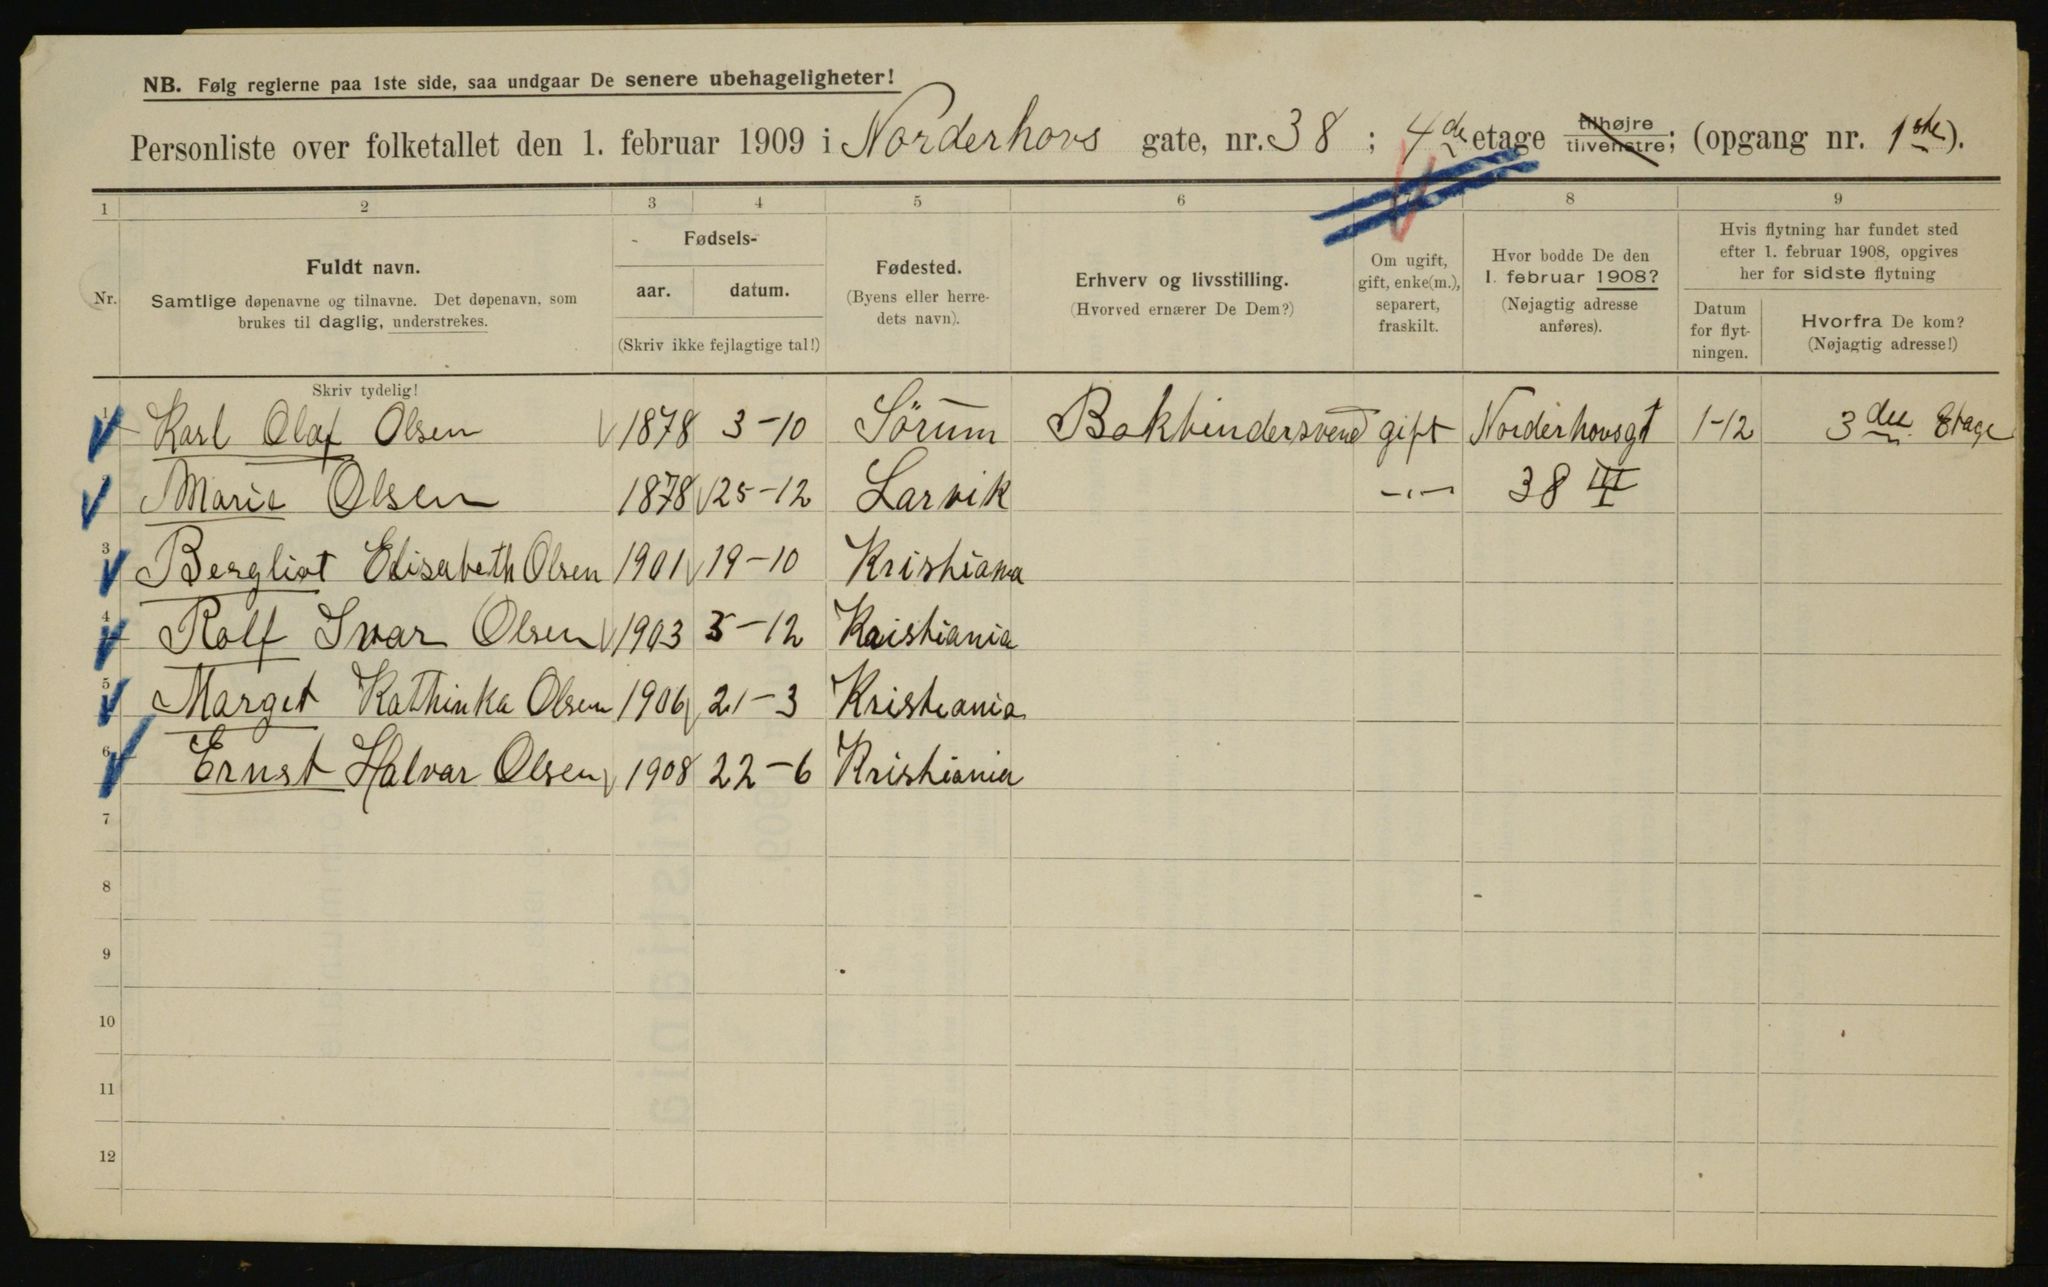 NB. Følg reglerne paa 1ste side, saa undgaar De senere ubehageligheter!
Personliste over folketallet den 1. februar 1909 i Norderhovs gate, nr. 38 ; 4de etage tilhøjre tilvenstre; (opgang nr. 1ste).
1 2 3 4 5 6 8 9
Nr.
Fuldt navn.
Samtlige døpenavne og tilnavne. Det døpenavn, som
brukes til daglig, understrekes.
Fødsels-
aar. datum.
(Skriv ikke fejlagtige tal!)
Fødested.
(Byens eller herre-
dets navn).
Erhverv og livsstilling.
(Hvorved ernærer De Dem?)
Om ugift,
gift, enke(m.),
separert,
fraskilt.
Hvor bodde De den
1. februar 1908?
(Nøjagtig adresse
anføres).
Hvis flytning har fundet sted
efter 1. februar 1908, opgives
her for sidste flytning
Datum
for flyt-
ningen.
Hvorfra De kom?
(Nøjagtig adresse!)
Skriv tydelig!
1 Karl Olaf Olsen 1878 3-10 Sörum Bokbindersvend gift Norderhovsgt 1-12 3die Etage
Marie Olsen 1878 25-12 Larvik -"- 38 III
3 Bergliot Elisabeth Olsen 1901 19-10 Kristiania
4 Rolf Ivar Olsen 1903 5-12 Kristiania
5 Marget Kathinka Olsen 1906 21-3 Kristiania
6 Ernst Halvar Olsen 1908 22-6 Kristiania
7
8
9
10
11
12